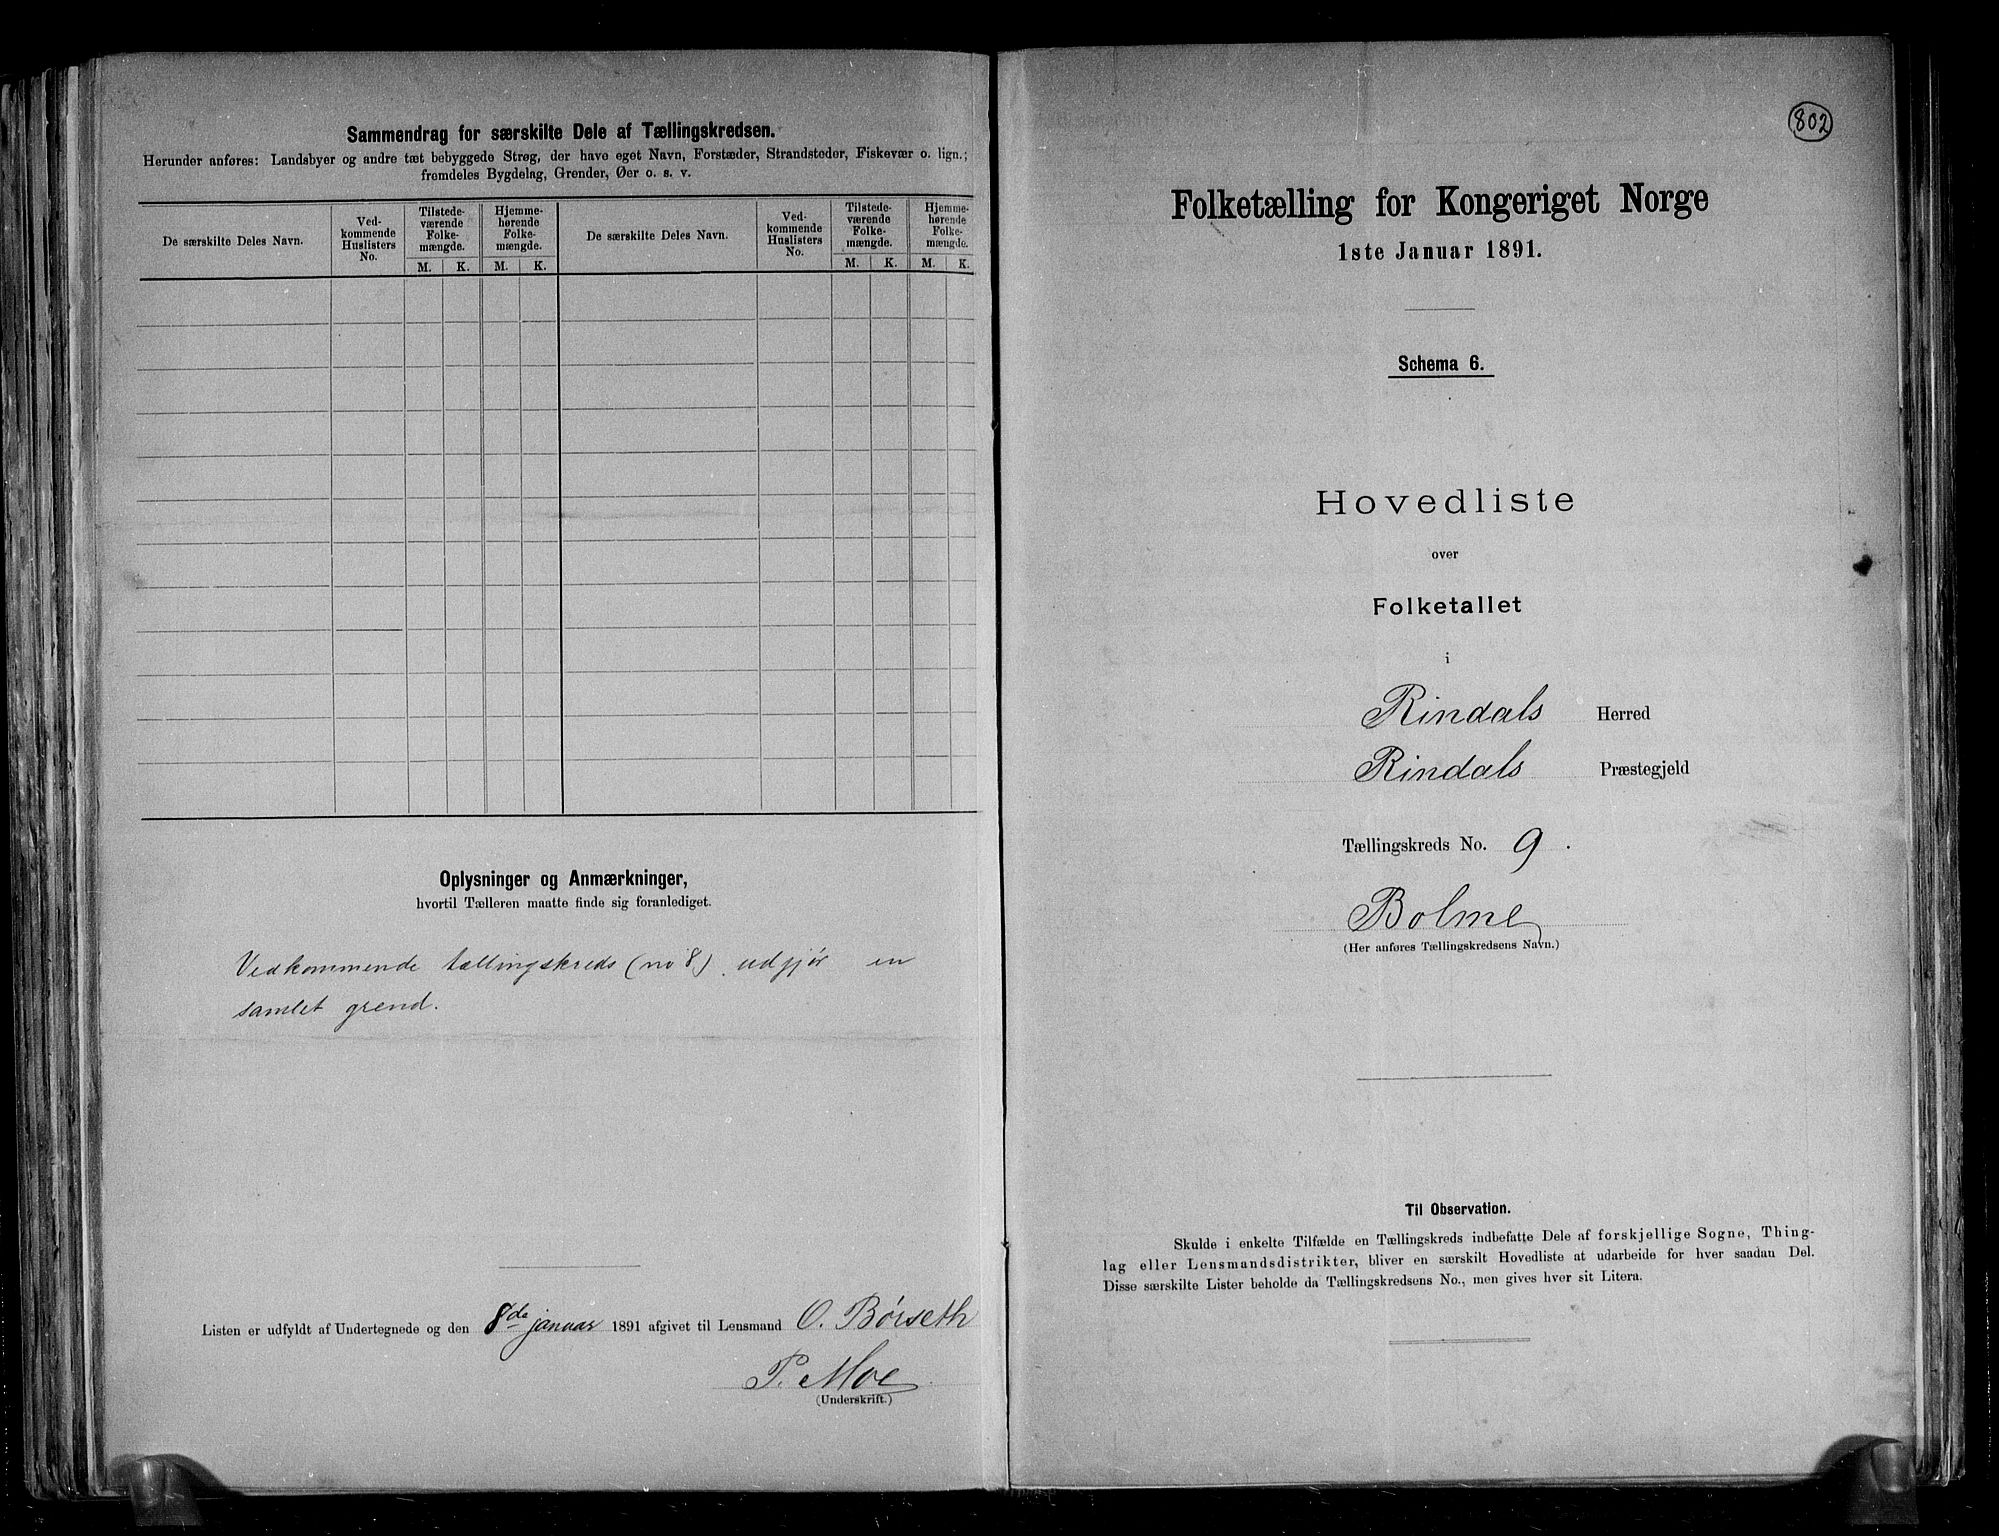 Sammendrag for særskilte Dele af Tællingskredsen.
Herunder anføres: Landsbyer og andre tæt bebyggede Strøg, der have eget Navn, Forstæder, Strandsteder, Fiskevær o. lign.;
fremdeles Bygdelag, Grender, Øer o. s. v.
De særskilte Deles Navn.
Ved-
kommende
Huslisters
No.
Tilstede-
værende
Folke-
mængde.
Hjemme-
hørende
Folke-
mængde.
De særskilte Deles Navn.
Ved-
kommende
Huslisters
No.
Tilstede-
værende
Folke-
mængde.
Hjemme-
hørende
Folke-
mængde.
M. K. M. K. M. K. M. K.
Oplysninger og Anmærkninger,
hvortil Tælleren maatte finde sig foranlediget.
Vedkommende tællingskreds (no 8) udgjør en
samlet grend.
Listen er udfyldt af Undertegnede og den 8de januar 1891 afgivet til Lensmand O. Børseth
P. Moe
(Underskrift.)
802
Folketælling for Kongeriget Norge
1ste Januar 1891.
Schema 6.
Hovedliste
over
Folketallet
i
Rindals Herred
Rindals Præstegjeld
Tællingskreds No. 9.
Bolme
(Her anføres Tællingskredsens Navn.)
Til Observation.
Skulde i enkelte Tilfælde en Tællingskreds indbefatte Dele af forskjellige Sogne, Thing-
lag eller Lensmandsdistrikter, bliver en særskilt Hovedliste at udarbeide for hver saadan Del.
Disse særskilte Lister beholde da Tællingskredsens No., men gives hver sit Litera.